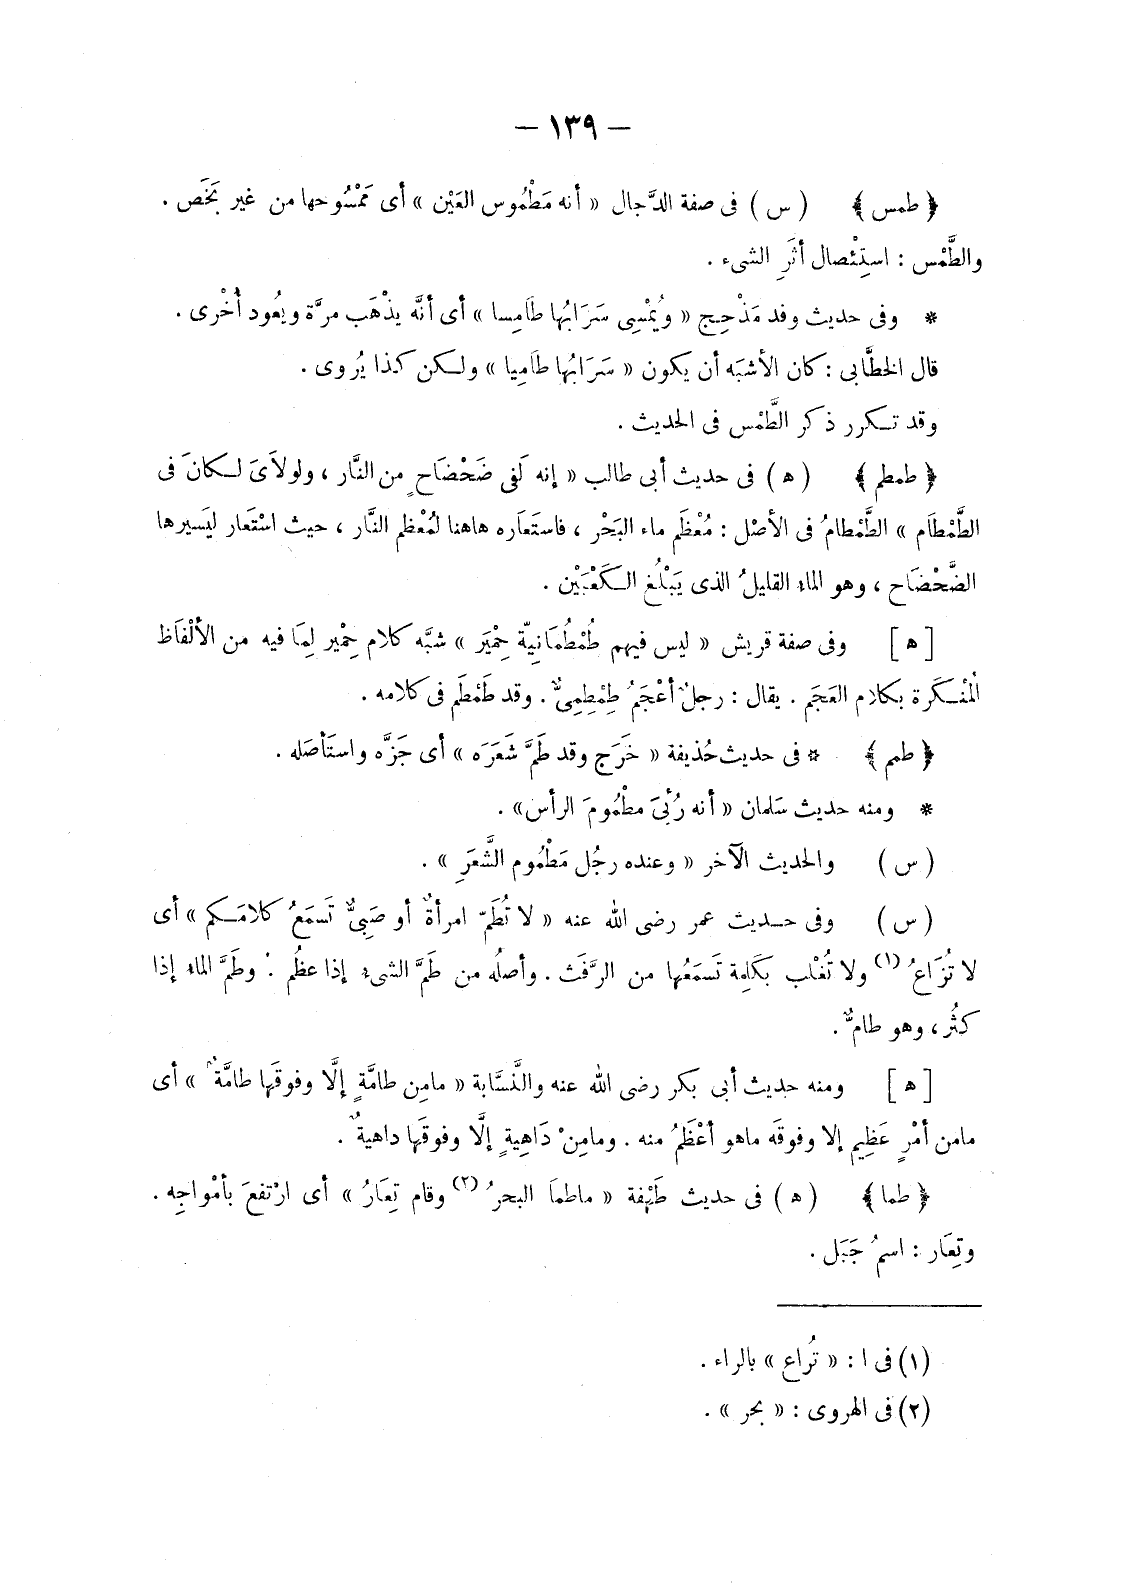 — ١٣٩ —
﴿ طمس ﴾ ( س ) فى صفة الدَّجال « أنه مَطْمُوس العَيْن » أى مَمْسُوحها من غير بَخَص .
والطَّمْس : استِئْصال أثَرِ الشىء .
* وفى حديث وفد مَذْحِج « ويُمْسِى سَرَابُها طَامِسا » أى أنَّه يذْهَب مرَّة ويعُود أُخْرى .
قال الخطَّابى : كان الأشبَه أن يكون « سَرَابُها طامِيا » ولكن كذا يُروى .
وقد تكرر ذكر الطَّمْس فى الحديث .
﴿ طمطم ﴾ ( ه ) فى حديث أبى طالب « إنه لَفى ضَحْضَاحٍ من النَّار ، ولولاَىَ لكانَ فى
الطَّمْطَام » الطَّمْطامُ فى الأصْل : مُعْظَم ماء البَحْر ، فاستَعَاره هاهنا لمُعْظم النَّار ، حيث اسْتَعار ليَسيرها
الضَّحْضَاح ، وهو الماء القليلُ الذى يَبْلُغ الكَعْبَيْن .
[ ه ] وفى صفة قريش « ليس فيهم طُمْطُمَانِيّة حِمْيَر » شبَّه كلام حِمْير لِمَا فيه من الألْفَاظ
المُنْكَرة بكلام العَجَم . يقال : رجلٌ أعْجَمُ طِمْطِمِىٌّ . وقد طَمْطَم فى كلامه .
﴿ طمم ﴾ * فى حديث حُذيفة « خَرَج وقد طَمَّ شَعَرَه » أى جَزَّه واستَأصَله .
* ومنه حديث سَلمان « أنه رُئِىَ مطْمُومَ الرأس» .
( س ) والحديث الآخر « وعنده رجُل مَطْمُوم الشَّعَرِ » .
( س ) وفى حديث عمر رضى الله عنه « لا تُطَمّ امرأةٌ أو صَبِىٌّ تَسمَعُ كلامَكم » أى
لا تُزَاعُ (١) ولا تُغْلب بكَلِمة تَسمَعُها من الرَّفَث . وأصلُه من طَمَّ الشىء إذا عظُم . وطَمَّ الماء إذا
كثُر ، وهو طامٌّ .
[ ه ] ومنه حديث أبى بكر رضى الله عنه والنَّسَّابة « مامِن طامَّةٍ إلَّا وفوقَها طامَّةٌ » أى
مامن أمْرٍ عَظِيم إلا وفوقَه ماهو أعْظَمُ منه . ومامِنْ دَاهِيةٍ إلَّا وفوقَها داهيةٌ .
﴿ طما ﴾ ( ه ) فى حديث طَهْفة « ماطماَ البحرُ (٢) وقام تِعَارُ » أى ارْتفعَ بأمْواجِه .
وتِعَار : اسمُ جَبَل .
(١) فى ا : « تُراع » بالراء .
(٢) فى الهروى : « بحر » .